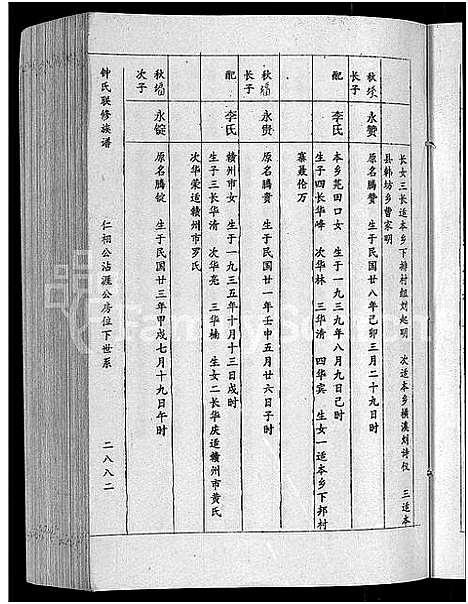 长女三长适本乡下排村组刘起明 次适本乡横溪刘诗仪 三适本
县韩坊乡曹家明
秋 长子 永赞 原名腾赞 生于民国廿八年己卯三月二十九日时
配 李氏 本乡苑田口女 生于一九三九年八月九日己时
生子四长华峰 次华林 三华清 四华宾 生女一适本乡下邦村
寨聂伦万
秋 长子 永贵 原名腾贵 生于民国廿一年壬申五月廿六日子时
配 李氏 赣州市女 生于一九三五年十月十三日戌时
生子三长华清 次华亮 三华楠 生女二长华庆适赣州市黄氏
次华荣适赣州市罗氏
秋 次子 永锭 原名腾锭 生于民国廿三年甲戌七月十九日午时
钟氏联修族谱 仁相公沾涯公房位下世系 二八八二